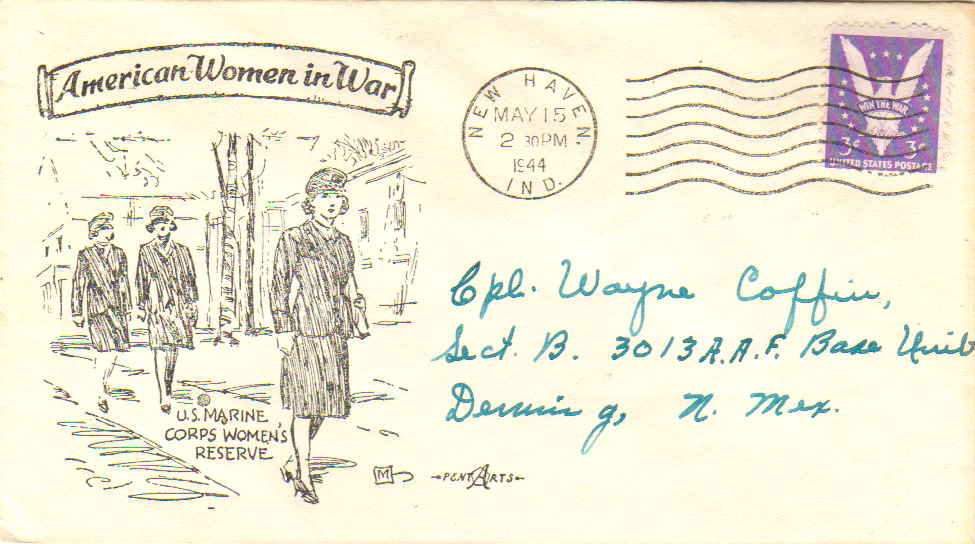 American Women in War
NEW HAVEN
MAY 15
2 30 PM
1944
IND.
WIN THE WAR
3¢ 3¢
UNITED STATES POSTAGE
Cpl. Wayne Coffin,
Sect. B. 3013 A.A.F. Base Unit
Deming, N. Mex.
U.S. MARINE
CORPS WOMEN'S
RESERVE
M
PENT ARTS